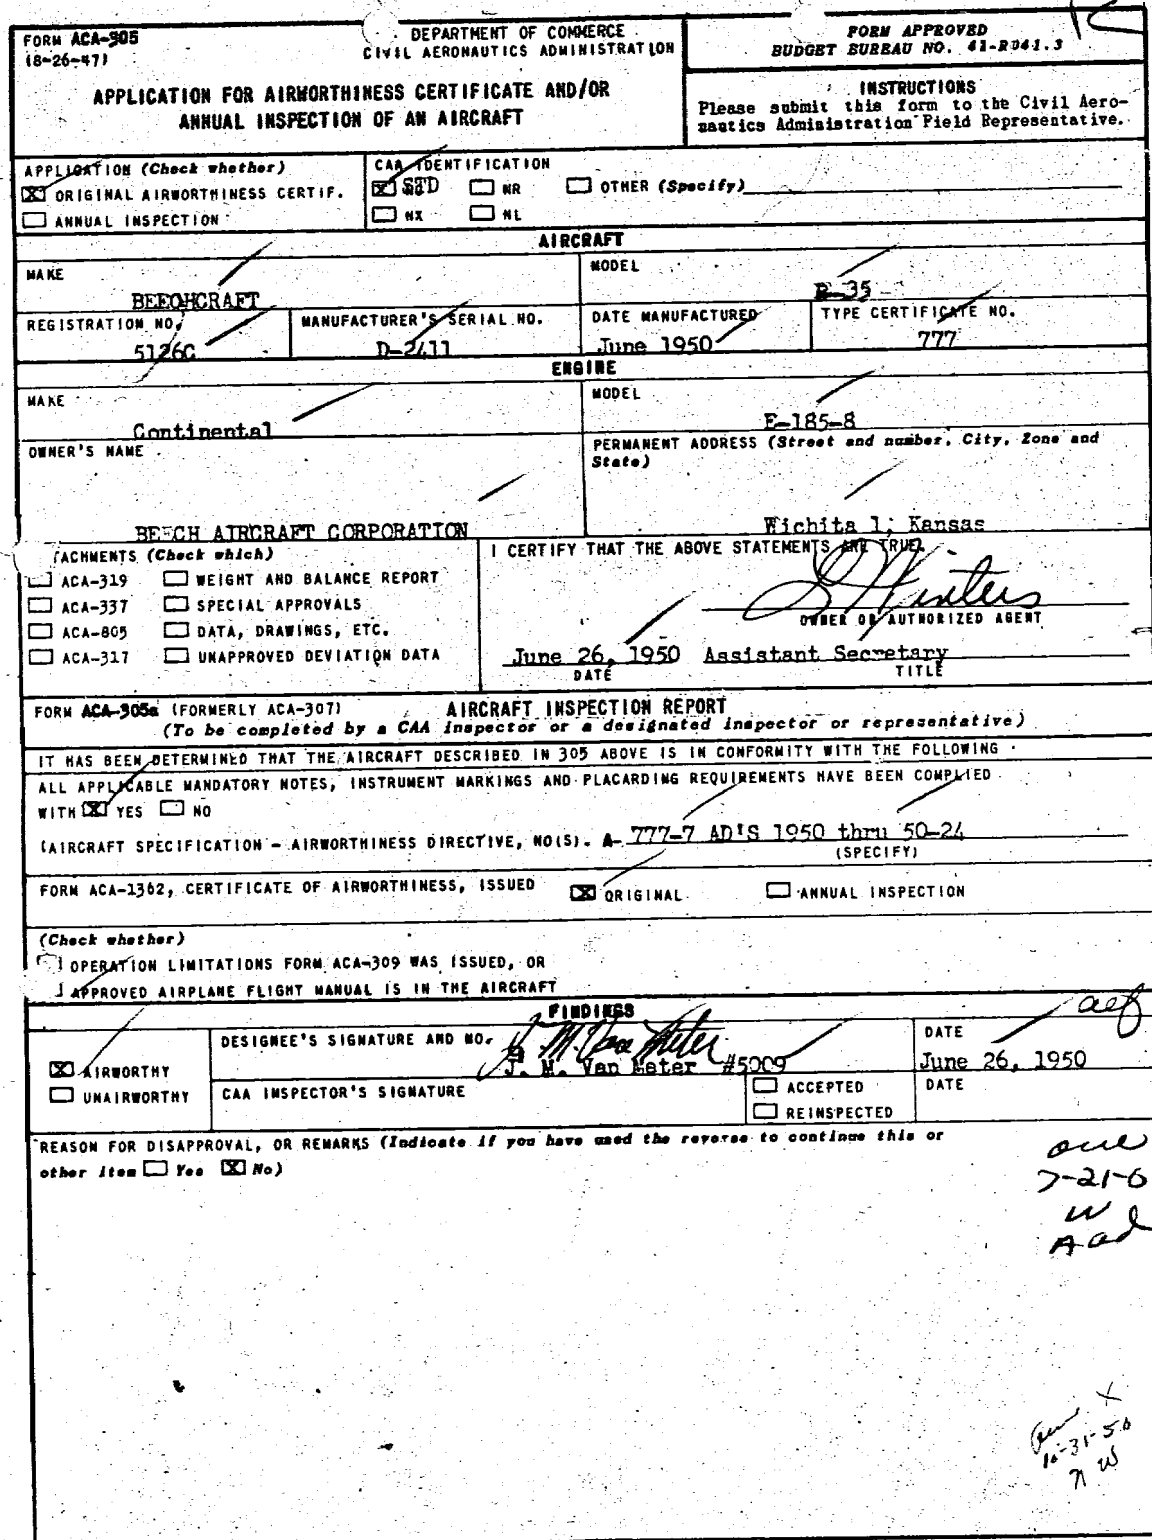 FORM ACA-305
(8-26-47)
DEPARTMENT OF COMMERCE
CIVIL AERONAUTICS ADMINISTRATION
APPLICATION FOR AIRWORTHINESS CERTIFICATE AND/OR
ANNUAL INSPECTION OF AN AIRCRAFT
FORM APPROVED
BUDGET BUREAU NO. 41-R041.3
INSTRUCTIONS
Please submit this form to the Civil Aero-
nautics Administration Field Representative.
APPLICATION (Check whether)
X ORIGINAL AIRWORTHINESS CERTIF.
ANNUAL INSPECTION
CAA IDENTIFICATION
X STD NR OTHER (Specify)
NX NL
AIRCRAFT
MAKE
BEECHCRAFT
MODEL
B-35
REGISTRATION NO.
5126C
MANUFACTURER'S SERIAL NO.
D-2411
DATE MANUFACTURED
June 1950
TYPE CERTIFICATE NO.
777
ENGINE
MAKE
Continental
MODEL
E-185-8
OWNER'S NAME
BEECH AIRCRAFT CORPORATION
PERMANENT ADDRESS (Street and number, City, Zone and
State)
Wichita 1, Kansas
TACHMENTS (Check which)
ACA-319 WEIGHT AND BALANCE REPORT
ACA-337 SPECIAL APPROVALS
ACA-805 DATA, DRAWINGS, ETC.
ACA-317 UNAPPROVED DEVIATION DATA
I CERTIFY THAT THE ABOVE STATEMENTS ARE TRUE.
Winters
OWNER OR AUTHORIZED AGENT
June 26, 1950 Assistant Secretary
DATE TITLE
FORM ACA-305a (FORMERLY ACA-307) AIRCRAFT INSPECTION REPORT
(To be completed by a CAA inspector or a designated inspector or representative)
IT HAS BEEN DETERMINED THAT THE AIRCRAFT DESCRIBED IN 305 ABOVE IS IN CONFORMITY WITH THE FOLLOWING
ALL APPLICABLE MANDATORY NOTES, INSTRUMENT MARKINGS AND PLACARDING REQUIREMENTS HAVE BEEN COMPLIED
WITH X YES NO
(AIRCRAFT SPECIFICATION - AIRWORTHINESS DIRECTIVE, NO(S). A- 777-7 AD'S 1950 thru 50-24
(SPECIFY)
FORM ACA-1362, CERTIFICATE OF AIRWORTHINESS, ISSUED X ORIGINAL ANNUAL INSPECTION
(Check whether)
OPERATION LIMITATIONS FORM ACA-309 WAS ISSUED, OR
APPROVED AIRPLANE FLIGHT MANUAL IS IN THE AIRCRAFT
FINDINGS
X AIRWORTHY
UNAIRWORTHY
DESIGNEE'S SIGNATURE AND NO.
J. M. Van Meter
J. M. Van Meter #5009
DATE
June 26, 1950
CAA INSPECTOR'S SIGNATURE
ACCEPTED
REINSPECTED
DATE
REASON FOR DISAPPROVAL, OR REMARKS (Indicate if you have used the reverse to continue this or
other item Yes X No)
7-21-0
W
10-31-50